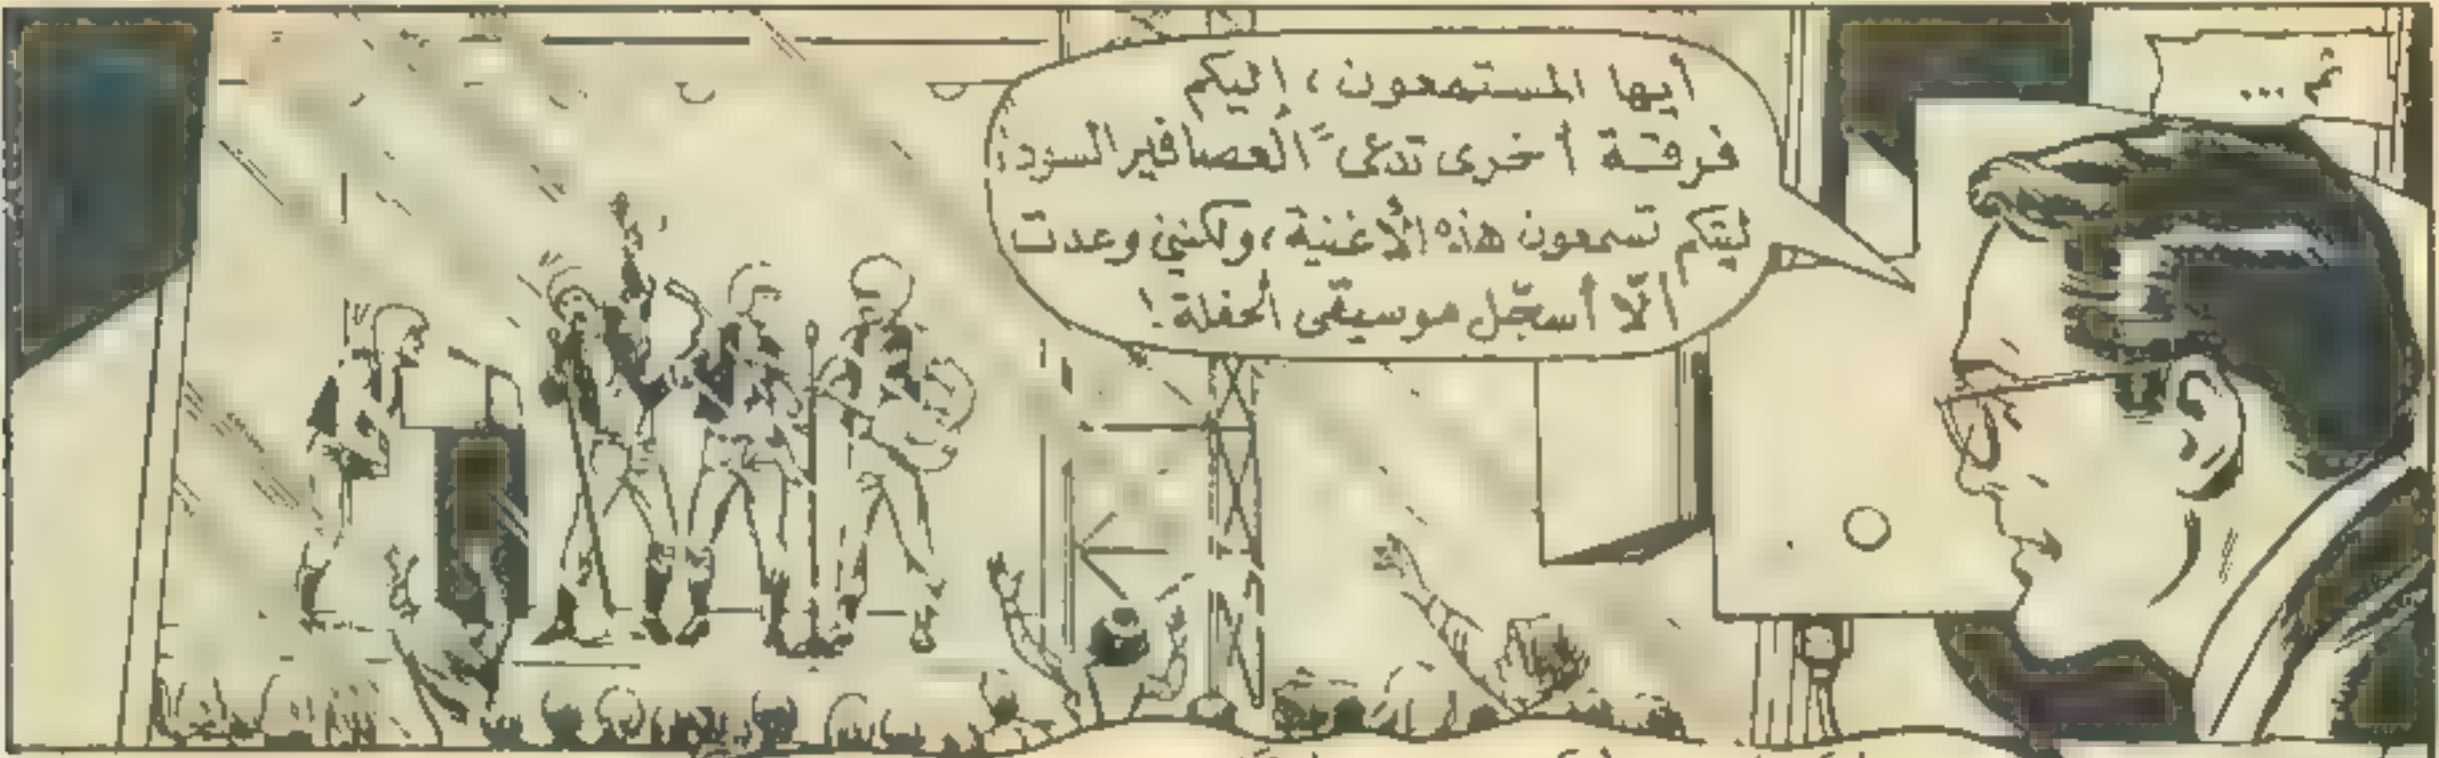 ثم ...
أيها المستمعون، إليكم
فرقة أخرى تدعى "العصافير السود،
ليتكم تسمعون هذه الأغنية، ولكنني وعدت
ألّا أسجّل موسيقى الحفلة!